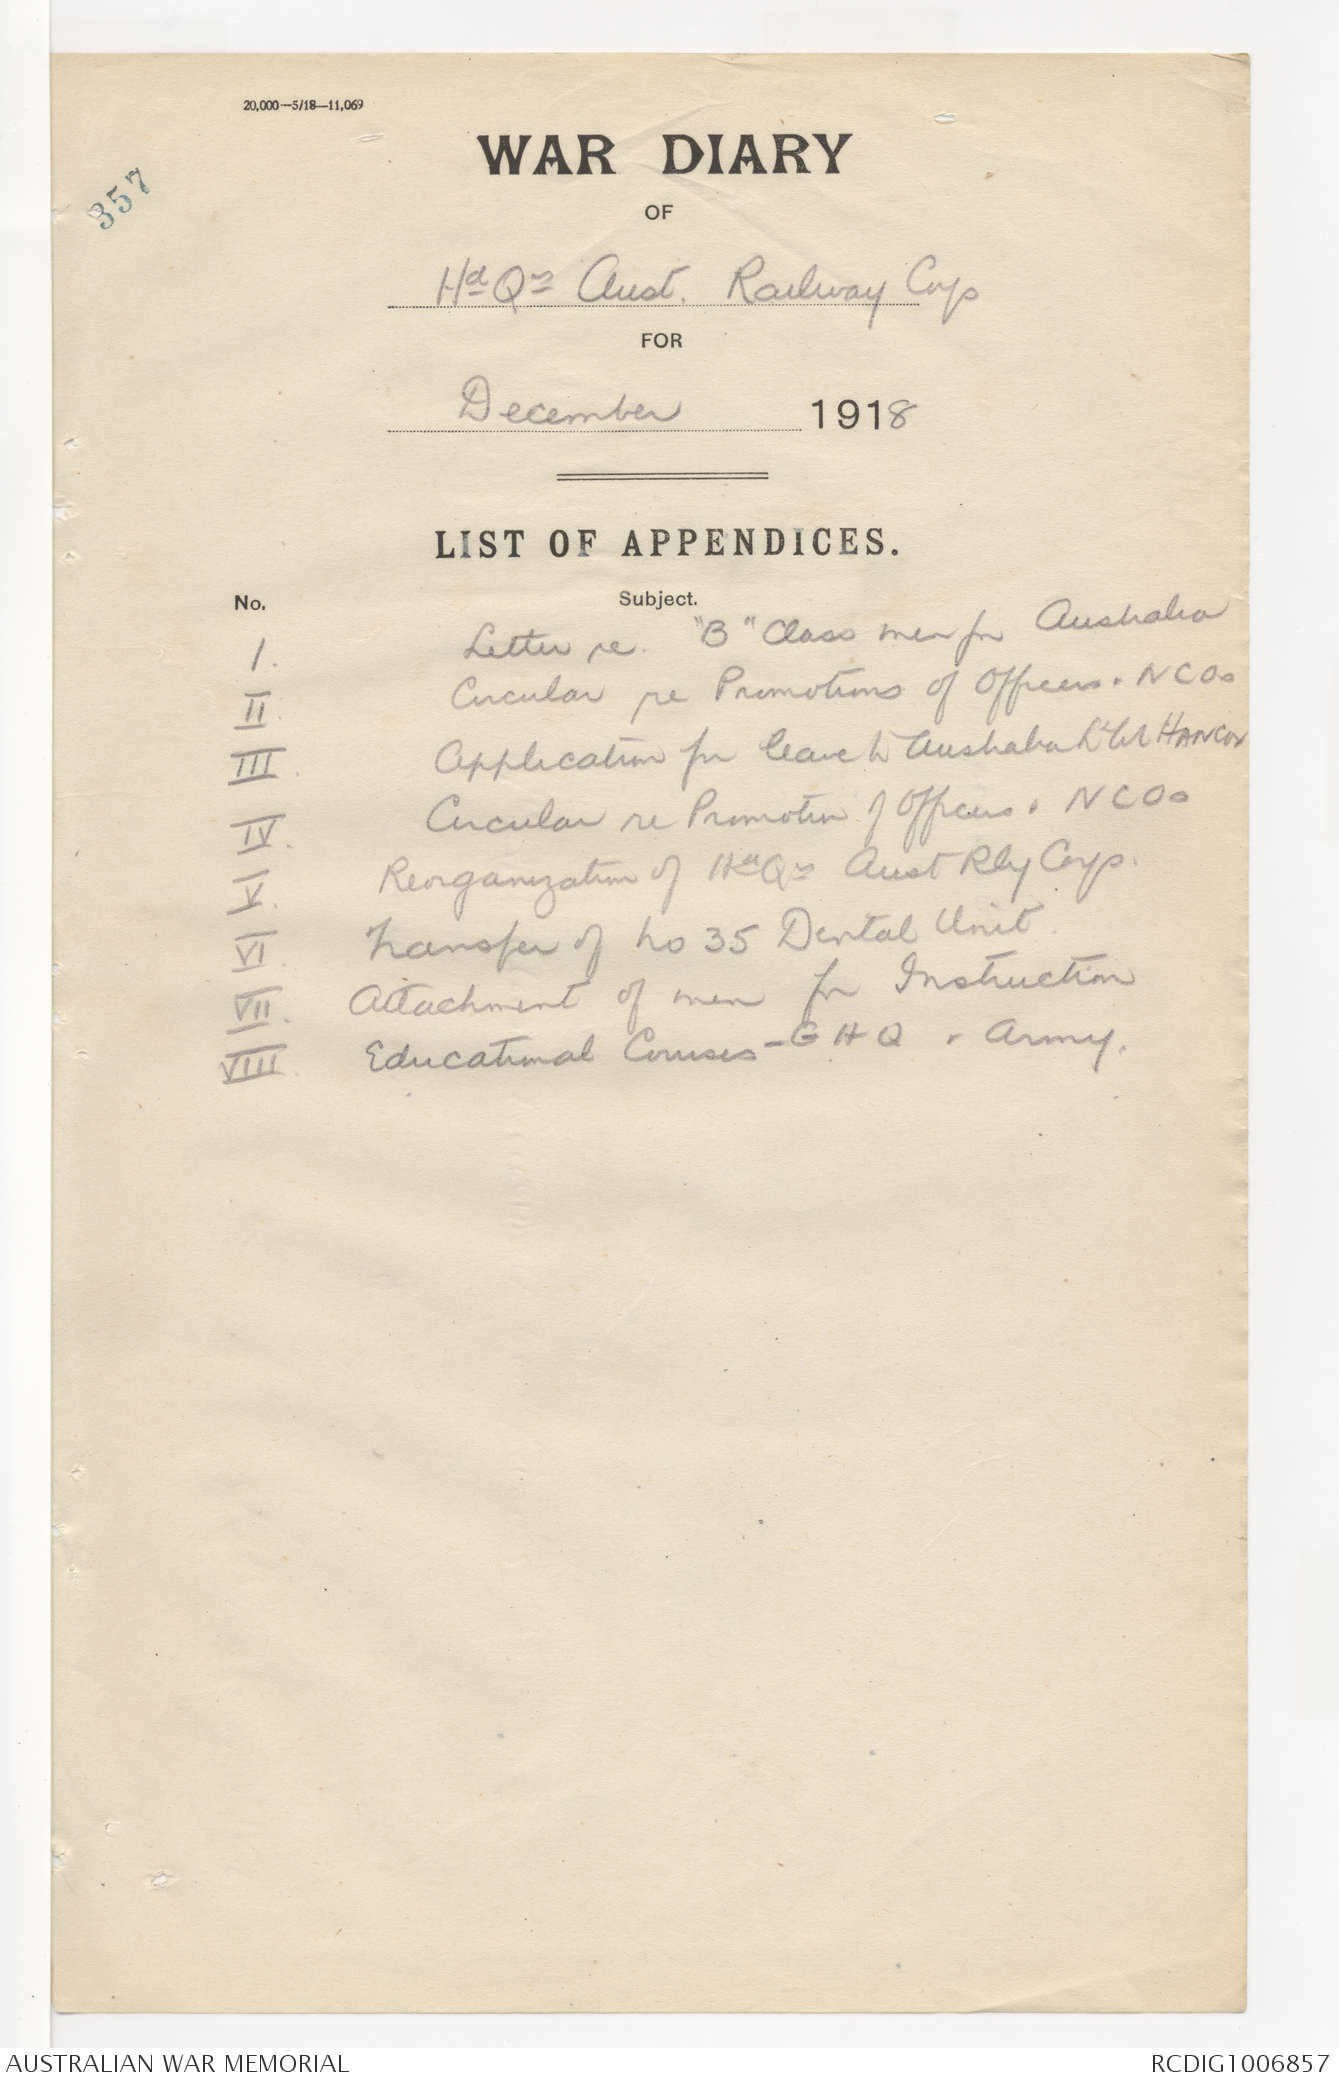 20,000—5/18—11,069
357
WAR DIARY
OF
Hd Qrs Aust. Railway Corps
FOR
December 1918
LIST OF APPENDICES.
No. Subject.
I. Letter re. "B" Class men for Australia
II. Circular re Promotions of Officers & NCOs
III. Application for leave to Australia Lt Col HANCOX
IV. Circular re Promotion of Officers & NCOs
V. Reorganization of Hd Qrs Aust Rly Corps.
VI. Transfer of No 35 Dental Unit.
VII. Attachment of men for Instruction
VIII. Educational Courses - GHQ & Army.
AUSTRALIAN WAR MEMORIAL RCDIG1006857